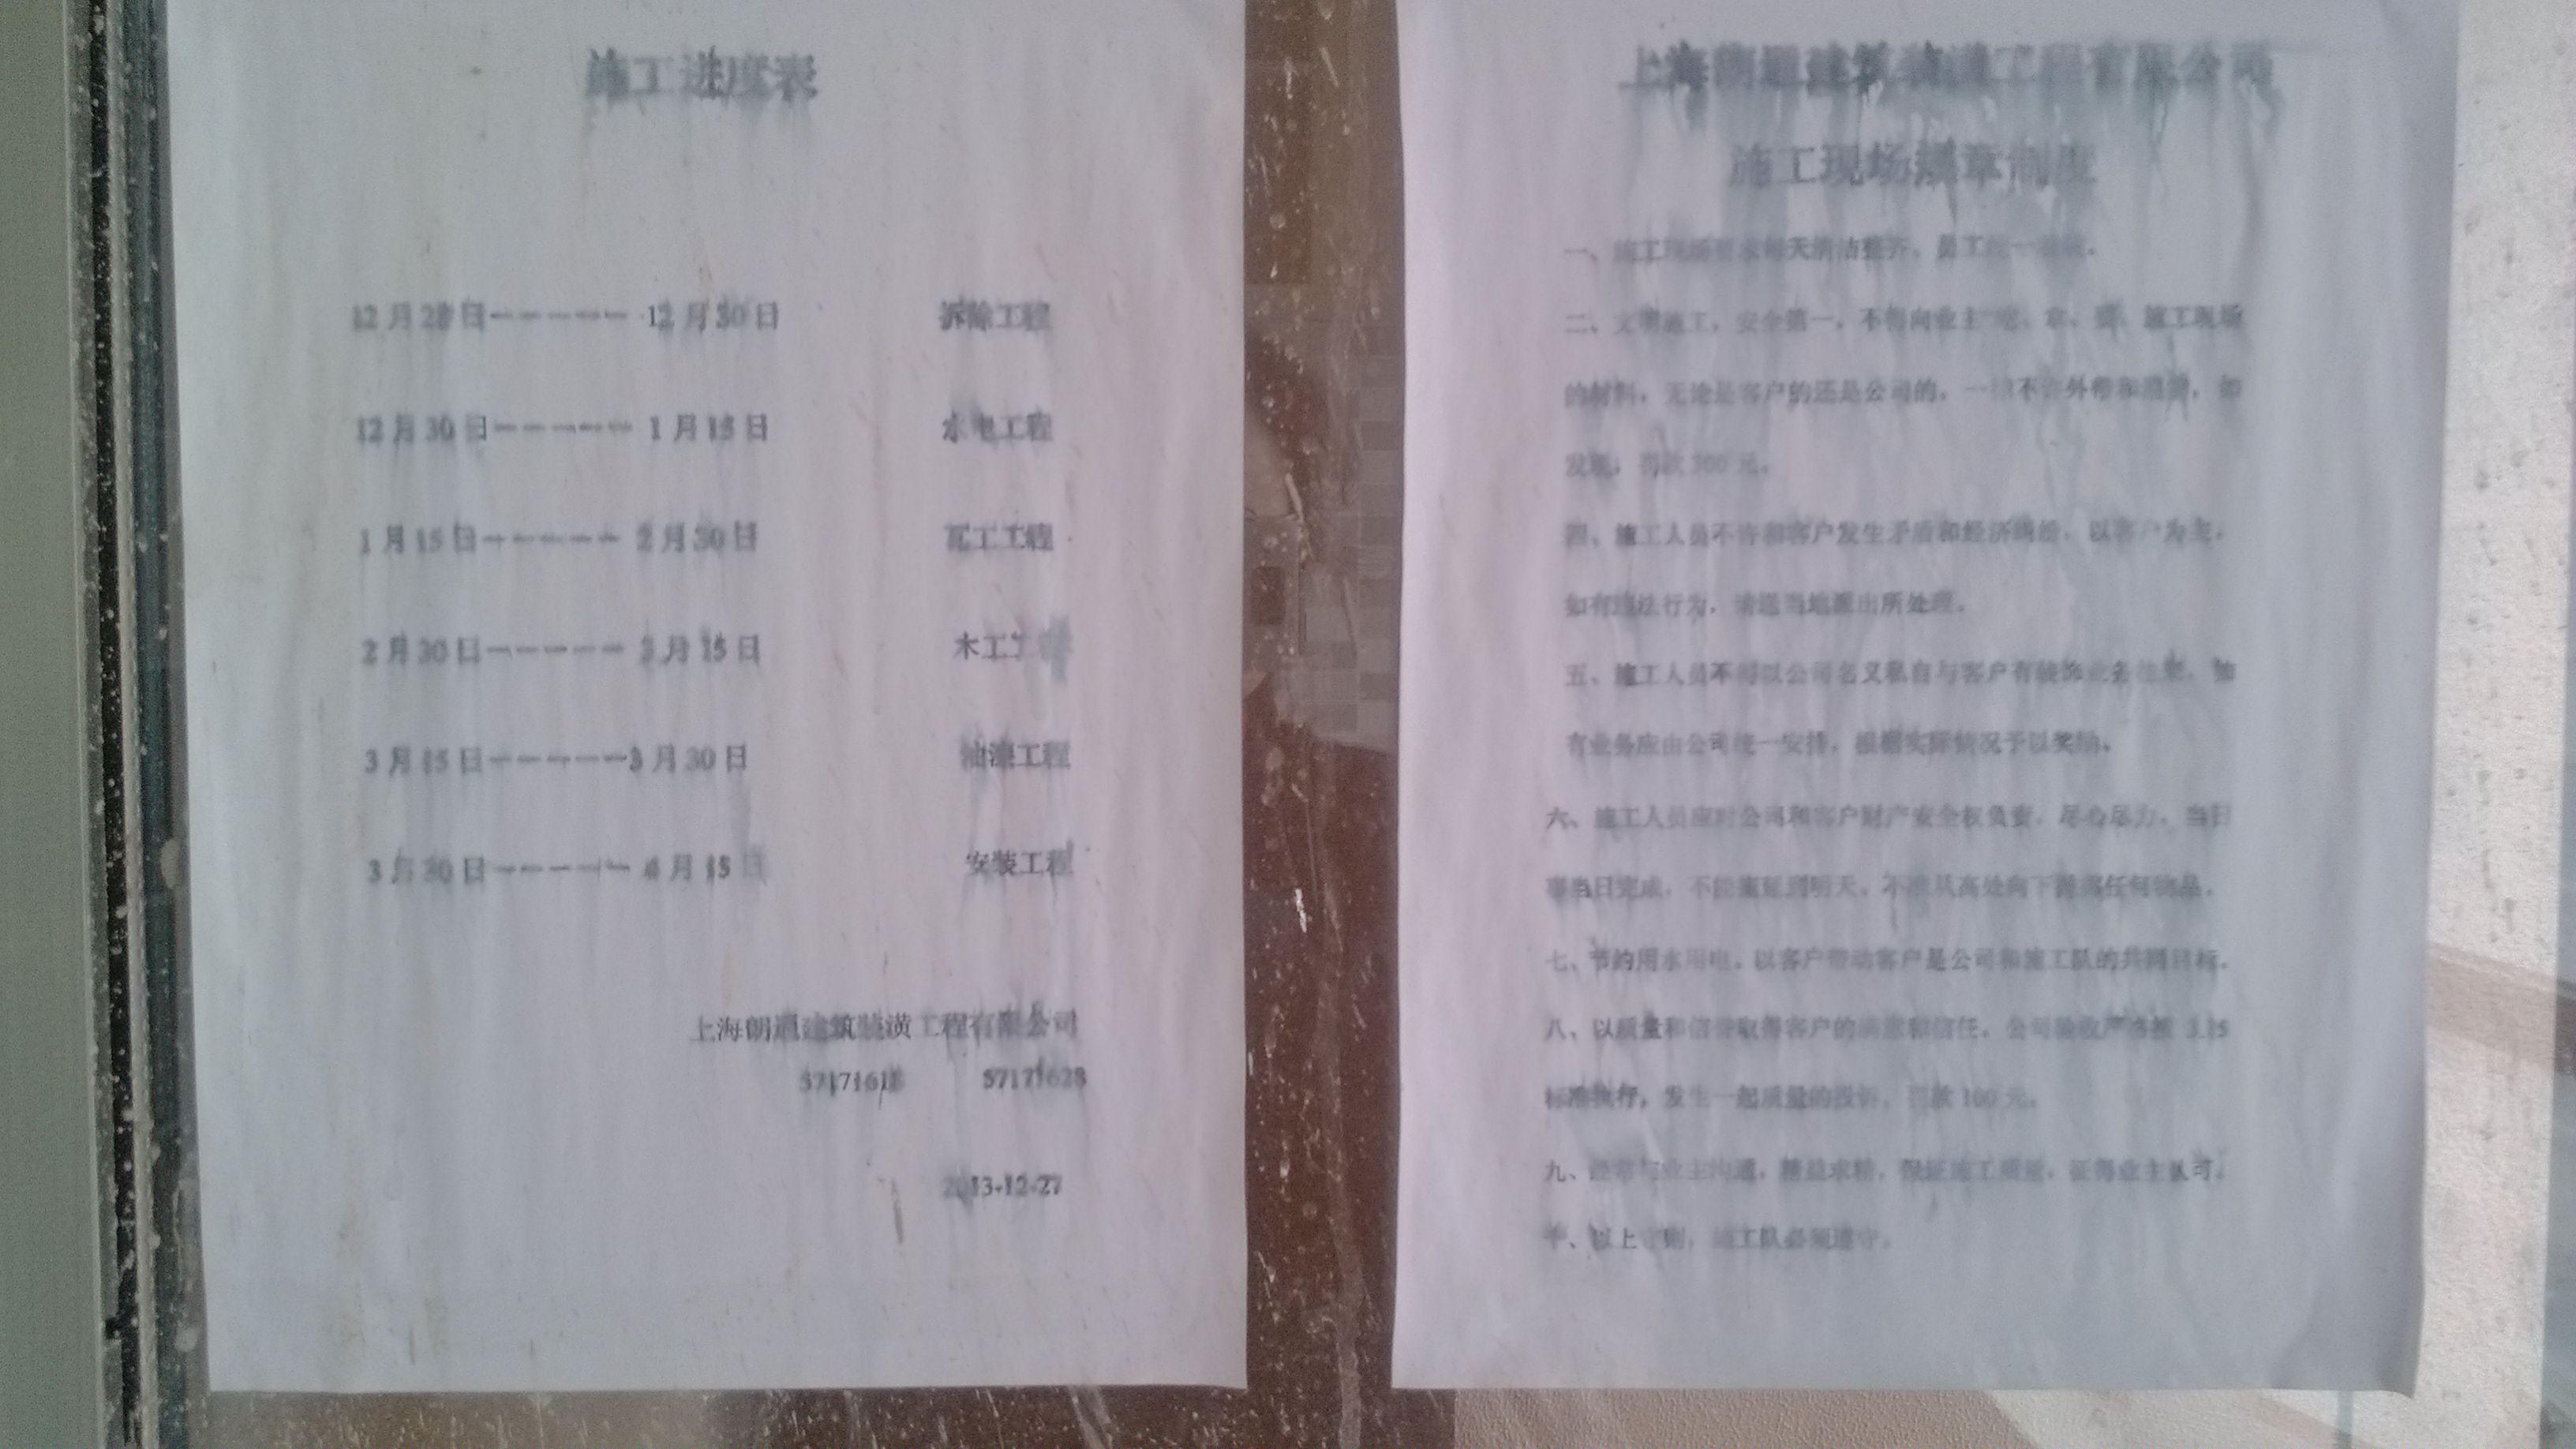 施工进度表
12月28日------12月30日 拆除工程
12月30日------1月15日 水电工程
1月15日------2月30日 瓦工工程
2月30日------3月15日 木工工程
3月15日------3月30日 油漆工程
3月30日------4月15日 安装工程
上海朗通建筑装潢工程有限公司
57171628
2013-12-27
上海朗通建筑装潢工程有限公司
施工现场规章制度
一、施工现场要求每天清洁整齐、员工统一
二、文明施工，安全第一，不得向业主吃、拿、要，施工现场
的材料，无论是客户的还是公司的，一律不许外带和，如
发现，罚款300元。
四、施工人员不许和客户发生矛盾和经济纠纷，以客户为主，
如有违法行为，请送当地派出所处理。
五、施工人员不得以公司名义私自与客户有装饰业务往来，如
有业务应由公司统一安排，根据实际情况予以奖励。
六、施工人员应对公司和客户财产安全权负责，尽心尽力，当日
事当日完成，不能拖延到明天，不准从高处向下抛落任何物品。
七、节约用水用电，以客户带动客户是公司和施工队的共同目标。
八、以质量和信誉取得客户的满意和信任，公司验收严格按 3.15
标准执行，发生一起质量的投诉，罚款100元。
九、经常与业主沟通，精益求精，保证施工质量，征得业主认可。
十、以上守则，施工队必须遵守。